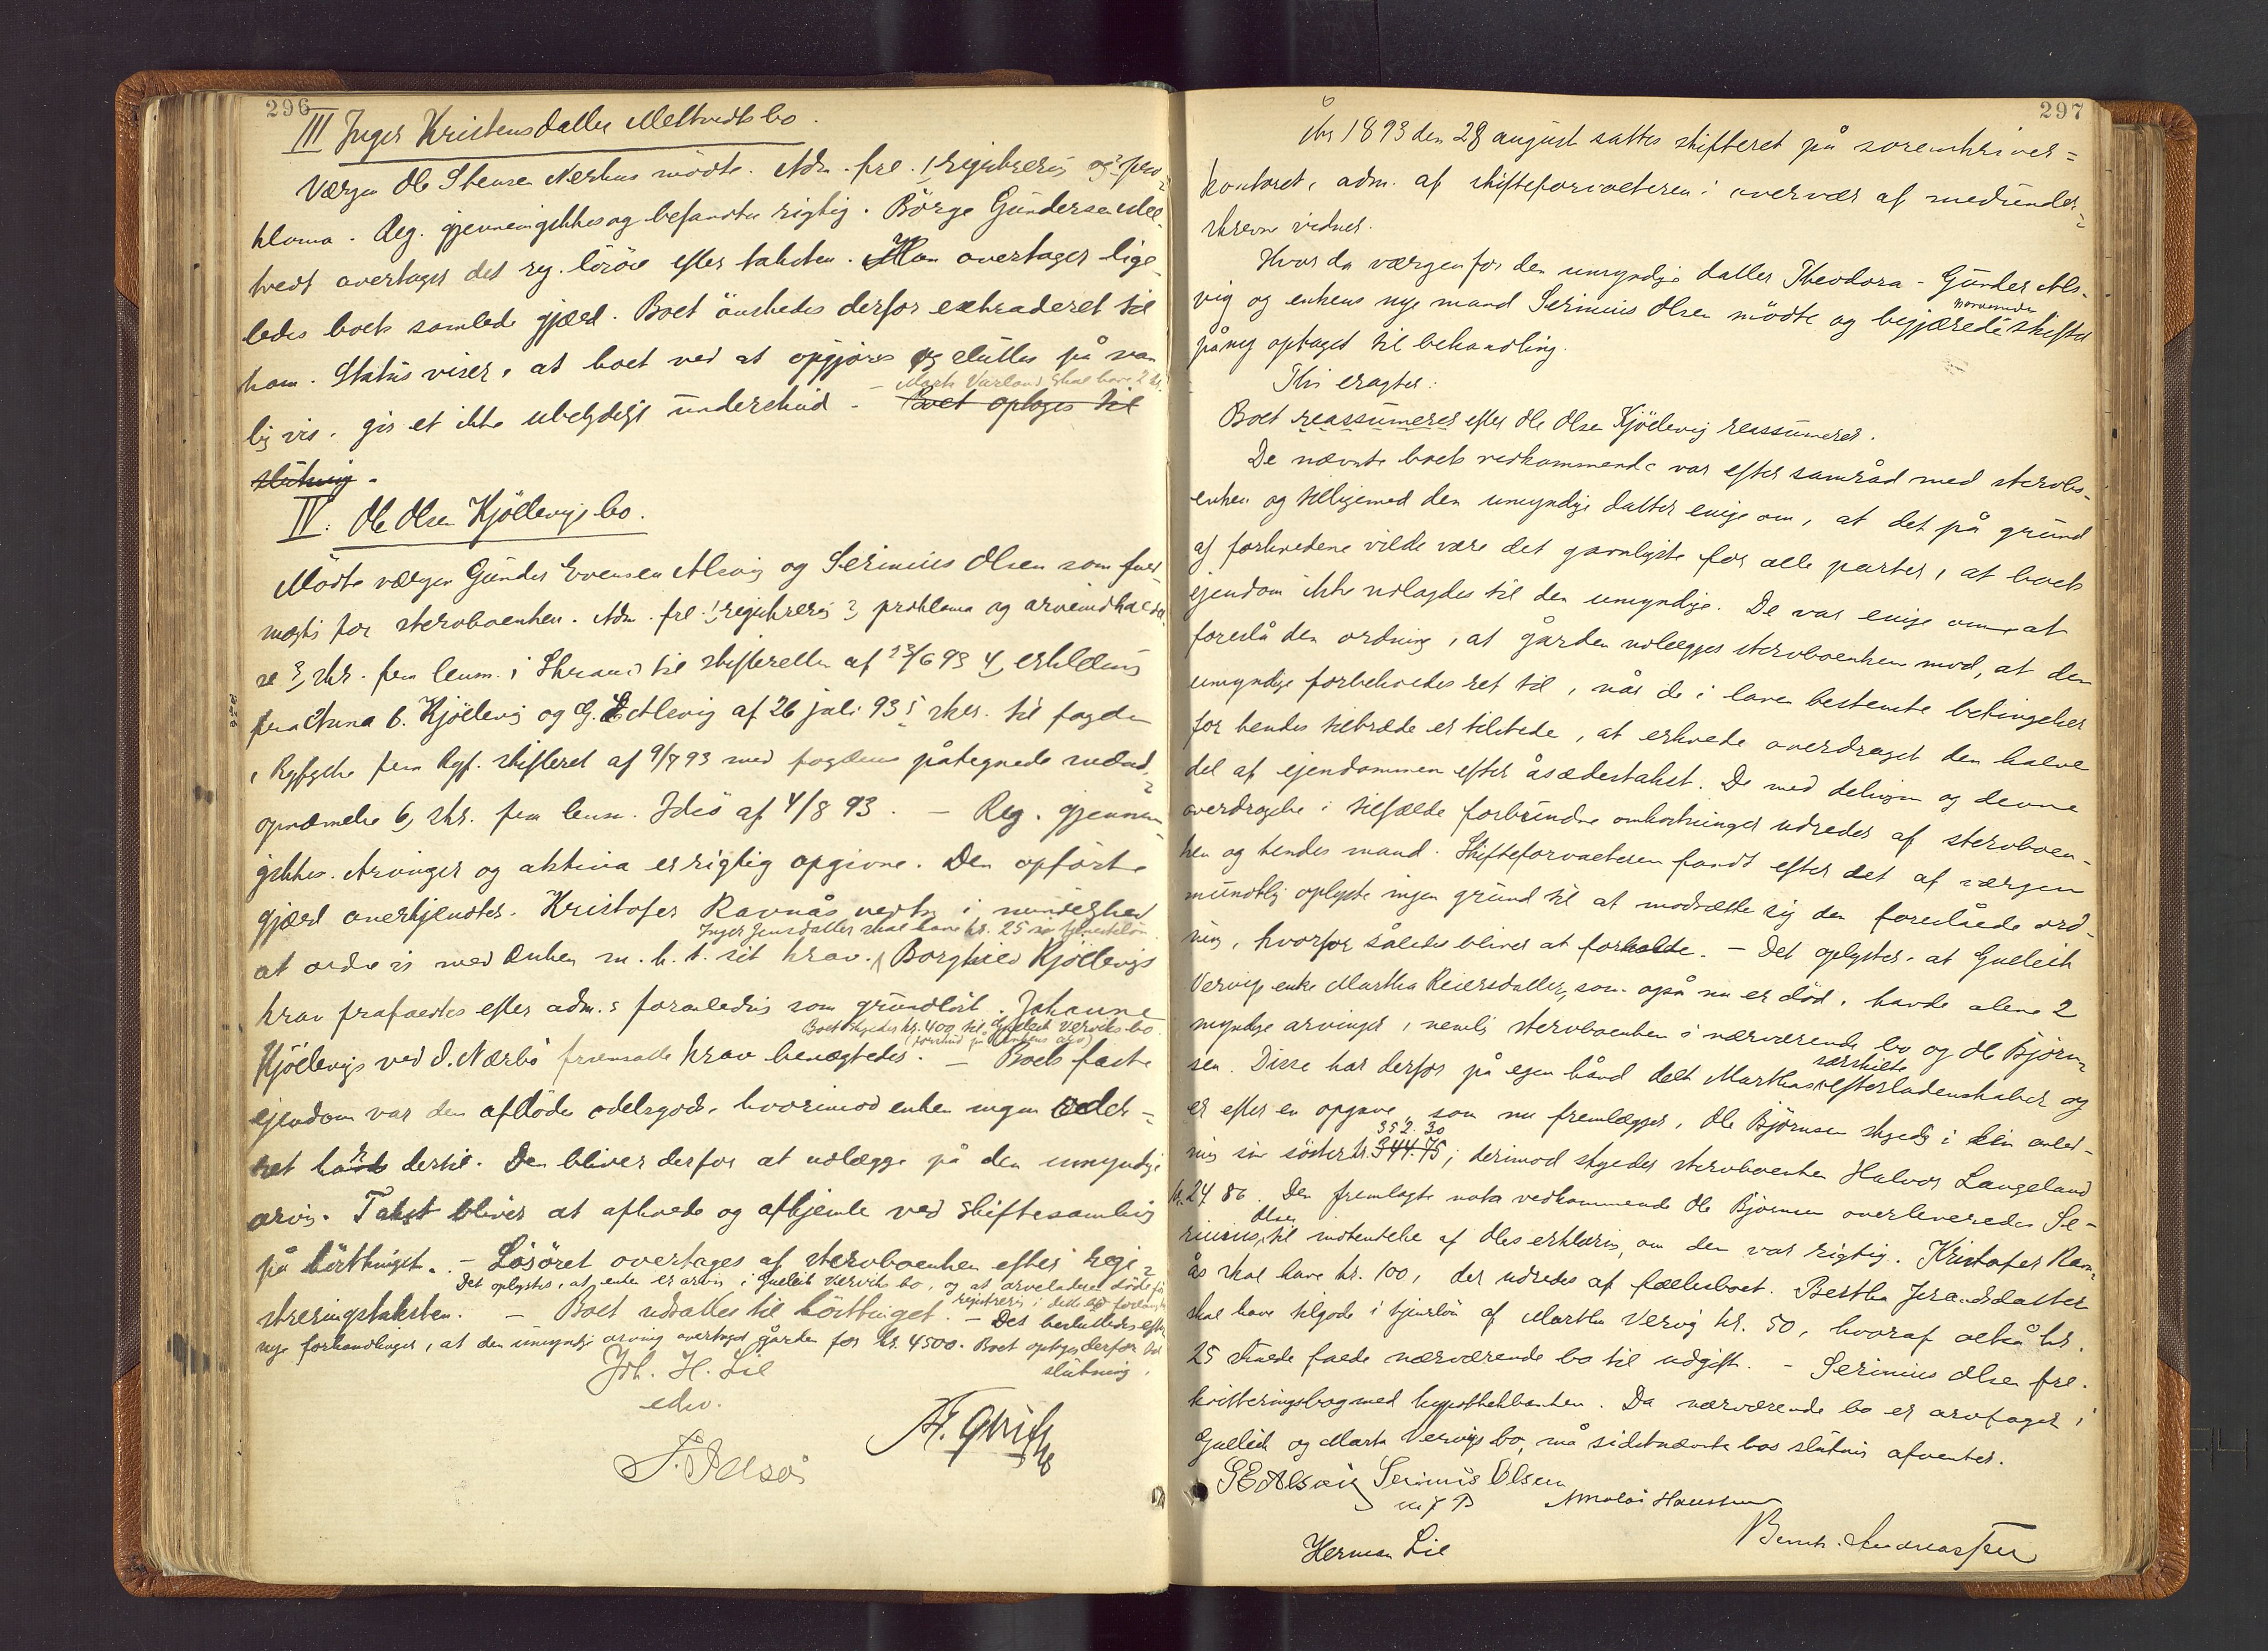 296
III Inger Kristensdatter Meltvedts bo.
Værgen Ole Stensen Nerhus mødte. Adm. fre. 1, registrering og 2, pro-
klama. Reg. gjennemgikkes og befandtes rigtig. Börge Gundersen Mel-
tvedt overtager det reg. lösöre efter taksten. Han overtager lige-
ledes boets samlede gjæld. Boet önskedes derfor extraderet til
ham. Status viser, at boet ved at opgjøres og sluttes på van-
- Marta Varland skal have 2 kr.
lig vis, gir et ikke ubetydeligt underskud. - Boet optages til
slutning.
IV. Ole Olsen Kjöllevigs bo.
Mødte værgen Gunder Evensen Alsvig og Serinius Olsen som fuld-
mægtig for stervboenken. Adm. fre. 1, registrering 2, proklama og arveindkaldel-
se 3, skr. fra lensm. i Strand til skifteretten af 13/6 93 4, erklæring
fra Anna B. Kjöllevig og G. E. Alsvig af 26 juli 93 5, skr. til fogden
i Ryfylke fra Ryf. skifteret af 9/7 93 med fogdens påtegnede mænds-
opnævnelse 6, skr. fra lensm. Idsö af 4/8 93. - Reg. gjennem-
gikkes. Arvinger og aktiva er rigtig opgivne. Den opförte
gjæld anerkjendtes. Kristofer Ravnås vedtog i mindelighed
Inger Jensdatter skal have kr. 25 som tjenestelön
at ordne sig med enken m. h. t. sit krav. Borghild Kjöllevigs
krav frafaldtes efter adm.s foranledning som grundlöst. Johanne
Boet skyldes kr. 400 til Gulleik Verviks bo.
(forskud på enkens arv)
Kjöllevigs ved S. Nærbö fremsatte krav benægtedes. - Boets faste
ejendom var den aflödes odelsgods, hvorimod enken ingen odels-
ret havde dertil. Den bliver derfor at udlægge på den umyndige
arving. Takst bliver at afholde og afhjemle ved skiftesamling
på hösttinget. - Lösöret overtages af stervboenken efter regi-
Det oplystes, at enken er arving i Gulleik Verviks bo, og at arveladeren döde för
registrering i dette bo foretoges
streringstaksten. - Boet udsattes til hösttinget. - Det besluttedes efter
nye forhandlinger, at den umyndige arving overtager gården for kr. 4500. Boet optages derfor til
slutning.
Joh. H. Lie
edsv.
S. Idsöe
297
År 1893 den 28 august sattes skifteret på sorenskriver-
kontoret, adm. af skifteforvalteren i overvær af medunder-
skrevne vidner.
Hvor da værgen for den umyndige datter Theodora - Gunder Als-
vig og enkens nye mand Serinius Olsen mødte og begjærede nærværende skiftet
påny optaget til behandling.
Thi eragtes:
Boet reassumeres efter Ole Olsen Kjöllevig reassumeres.
De nævnte boets vedkommende var efter samråd med stervbo-
enken og tilligemed den umyndige datter enige om, at det på grund
af forholdene vilde være det gavnligste for alle parter, at boets
ejendom ikke udlagdes til den umyndige. De var enige om at
foreslå den ordning, at gården udlægges stervboenken mod, at den
umyndige forbeholdes ret til, når de i loven bestemte betingelser
for hendes tiltræde er tilstede, at erholde overdraget den halve
del af ejendommen efter åsædestakst. De med delingen og denne
overdragelse i tilfælde forbundne omkostninger udredes af stervboen-
ken og hendes mand. Skifteforvalteren fandt efter det af værgen
mundtlig oplyste ingen grund til at modsætte sig den foreslåede ord-
ning, hvorfor således bliver at forholde. - Det oplystes, at Gulleik
Vervigs enke Martha Reiersdatter, som også nu er död, havde alene 2
myndige arvinger, nemlig stervboenken i nærværende bo og Ole Björn-
sen. Disse har derfor på egen hånd delt Marthas særskilte efterladenskaber og
er efter en opgave, som nu fremlægges, Ole Björnsen skyldig i den anled-
352.30
ning sin söster kr. 344.75; derimod skyldes stervboenken Halvor Langeland
kr. 24 86. Den fremlagte nota vedkommende Ole Björnsen overleveredes Se-
rinius Olsen til indhentelse af Oles erklæring, om den var rigtig. Kristofer Ravn-
ås skal have kr. 100, der udredes af fællesboet. Bertha Jerandsdatter
skal have tilgode i tjenerlön af Martha Vervig kr. 50, hvoraf altså kr.
25 skulde falde nærværende bo til udgift. - Serinius Olsen fre.
kvitteringsbog med hypothekbanken. Da nærværende bo er arvtager i
Gulleik og Marta Vervigs bo, må sidstnævnte bos slutning afventes.
G E Alsvig Serinius Olsen
m f P
Herman Lie
Bernh. Andreassen